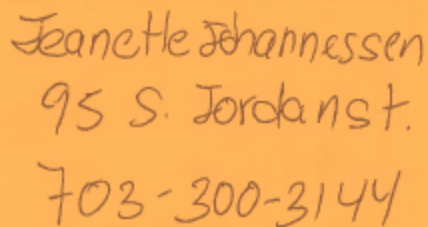 Jeanette Johannessen
95 S. Jordan st.
703-300-3144